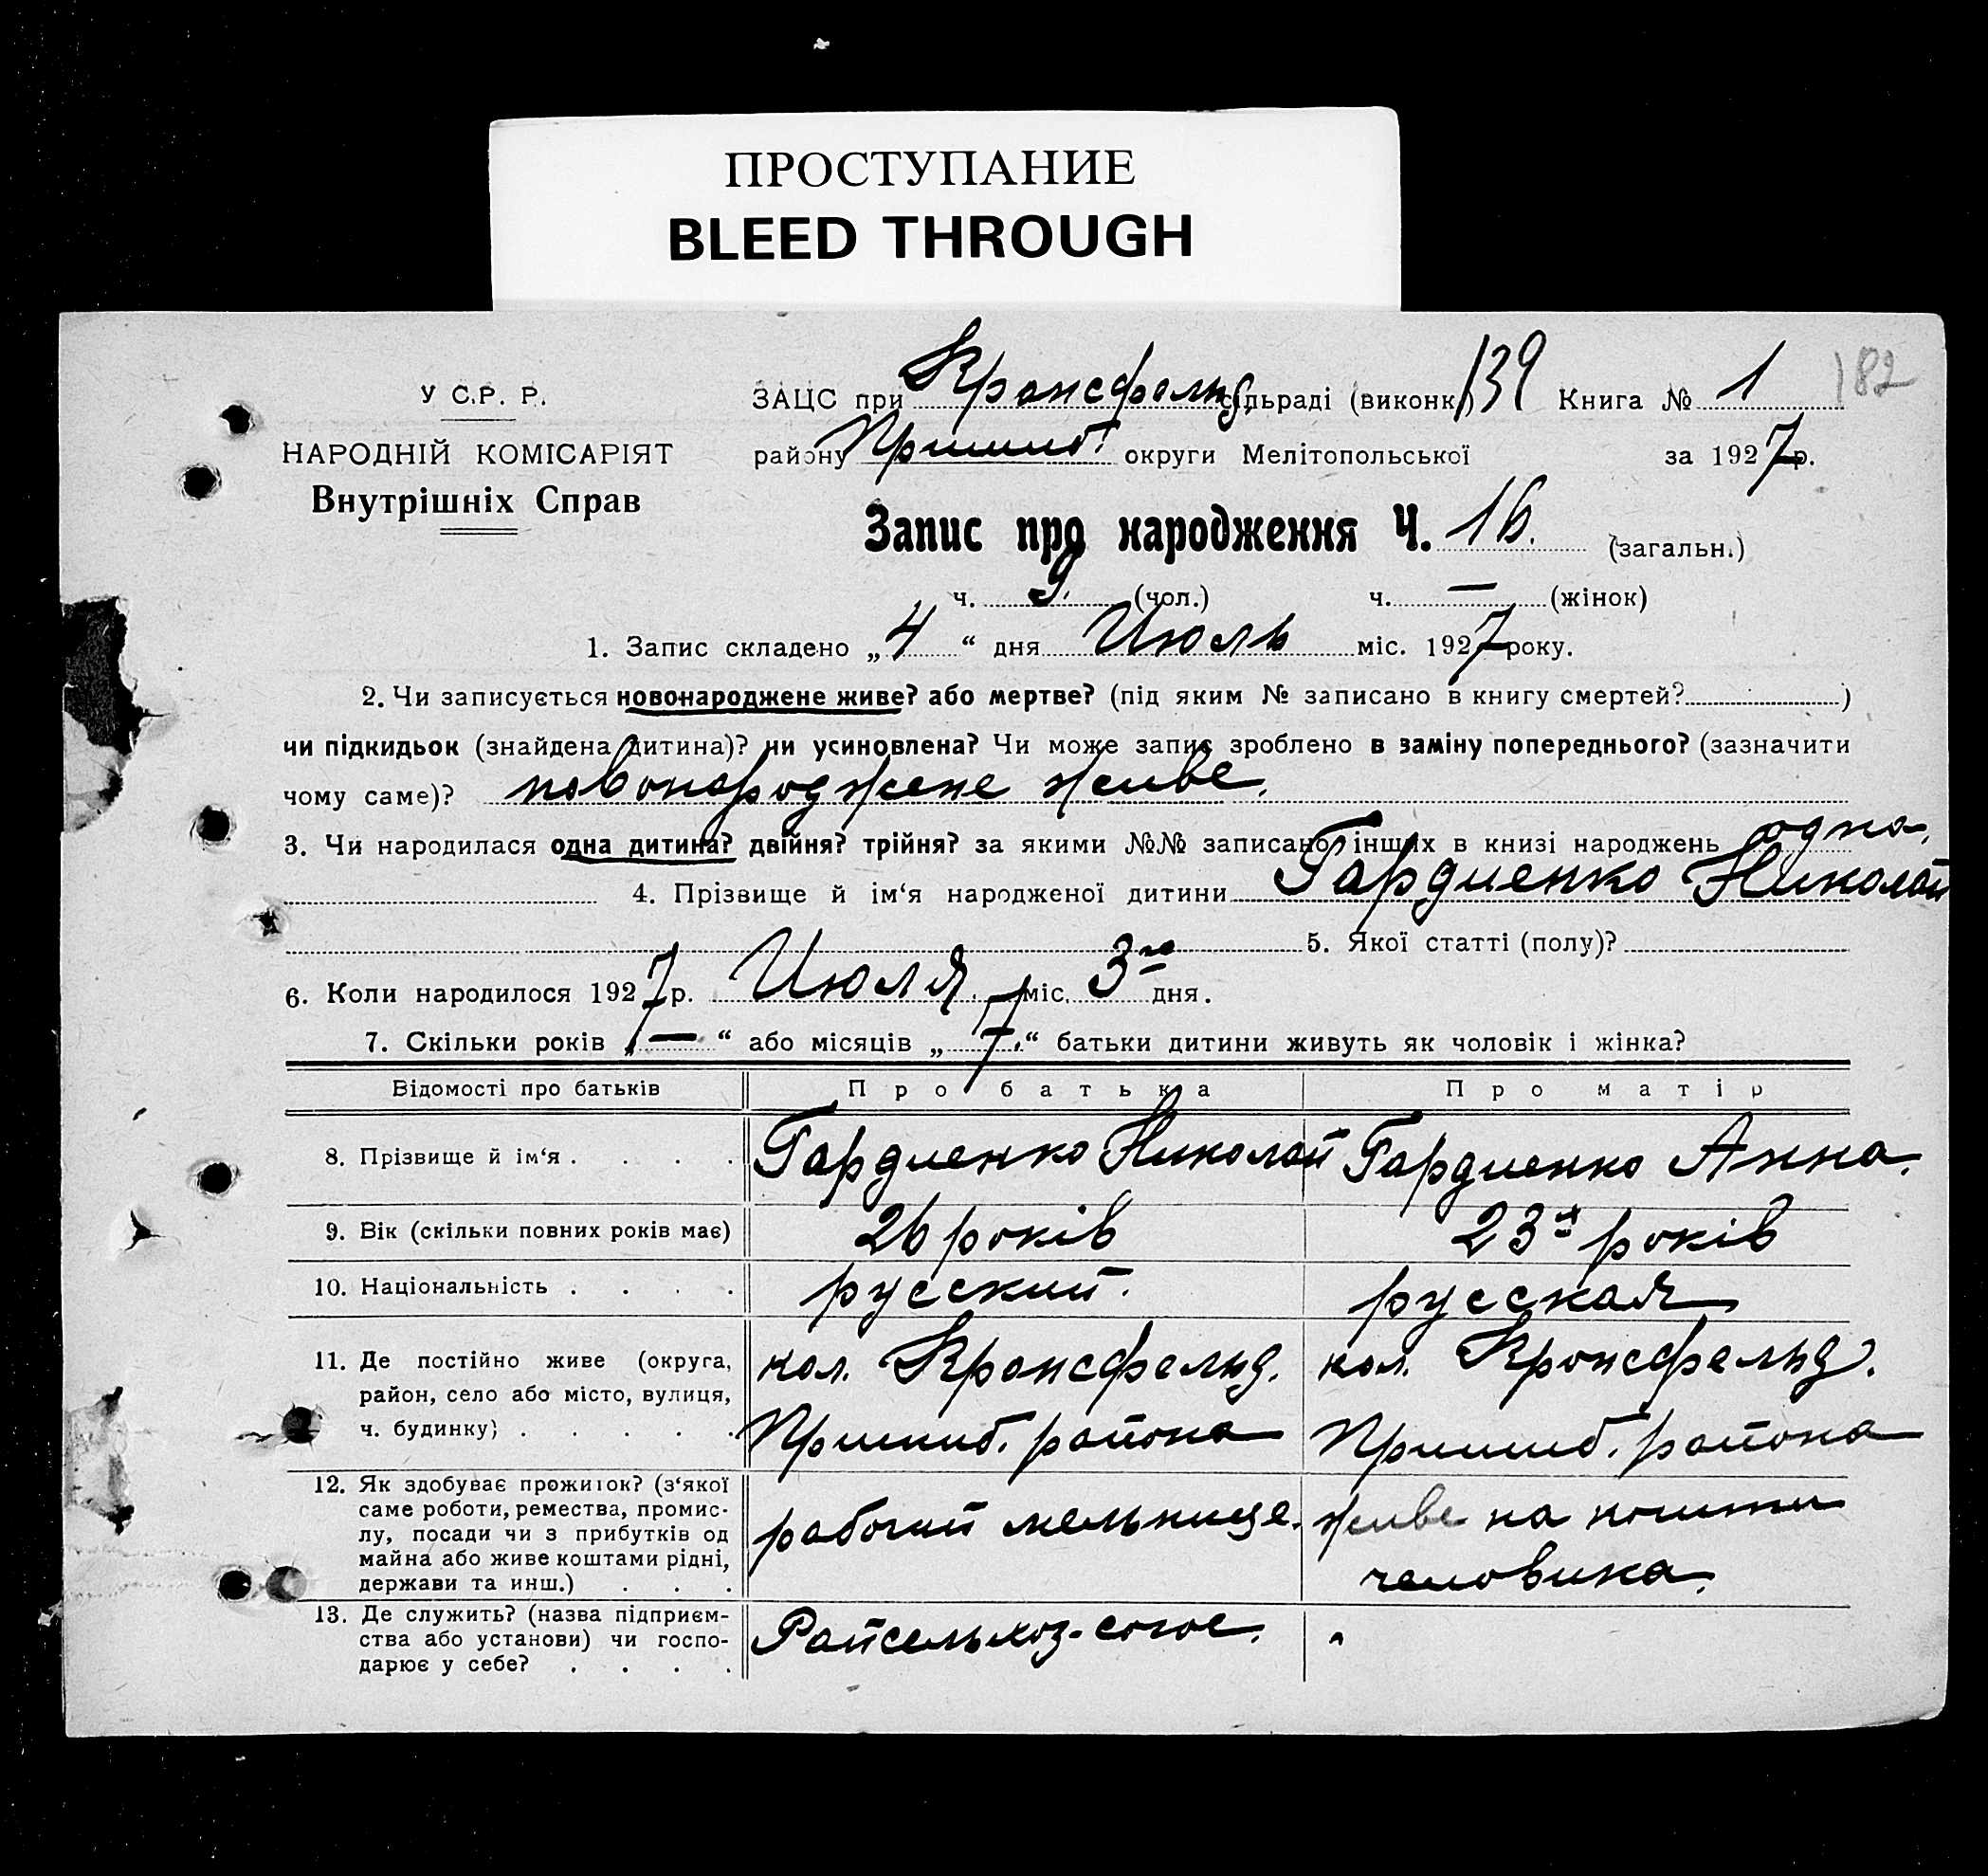 ПРОСТУПАНИЕ
BLEED THROUGH
У С.Р. Р.
НАРОДНІЙ КОМІСАРІЯТ
Внутрішніх Справ
ЗАЦС при Кронсфельд. сільраді (виконк.) 139 Книга № 1 182
району Пришиб. округи Мелітопольської за 1927 р.
Запис про народження Ч. 16. (загальн.)
ч. 9. (чол.) ч. — (жінок)
1. Запис складено „ 4 “ дня Июль міс. 1927 року.
2. Чи записується новонароджене живе? або мертве? (під яким № записано в книгу смертей? )
чи підкидьок (знайдена дитина)? чи усиновлена? Чи може запис зроблено в заміну попереднього? (зазначити
чому саме)? новонароджене живе.
3. Чи народилася одна дитина? двійня? трійня? за якими №№ записано інших в книзі народжень одна.
4. Прізвище й ім‘я народженої дитини Гардиенко Николай
5. Якої статті (полу)?
6. Коли народилося 1927 р. Июля міс. 3го дня.
7. Скільки років „ — “ або місяців „ 7. “ батьки дитини живуть як чоловік і жінка?
Відомості про батьків Про батька Про матір
8. Прізвище й ім‘я . . . . Гардиенко Николай Гардиенко Анна.
9. Вік (скільки повних років має) 26 років 23х років
10. Національність . . . . русский. русская
11. Де постійно живе (округа, кол. Кронсфельд. кол. Кронсфельд.
район, село або місто, вулиця,
ч. будинку) . . . . . Пришиб. района Пришиб. района
12. Як здобуває прожиток? (з‘якої
саме роботи, ремества, промис-
лу, посади чи з прибутків од рабочий мельнице. живе на кошти
майна або живе коштами рідні,
держави та инш.) . . . человика.
13. Де служить? (назва підприєм- Райсельхоз-
ства або установи) чи госпо- "
дарює у себе? . . . .